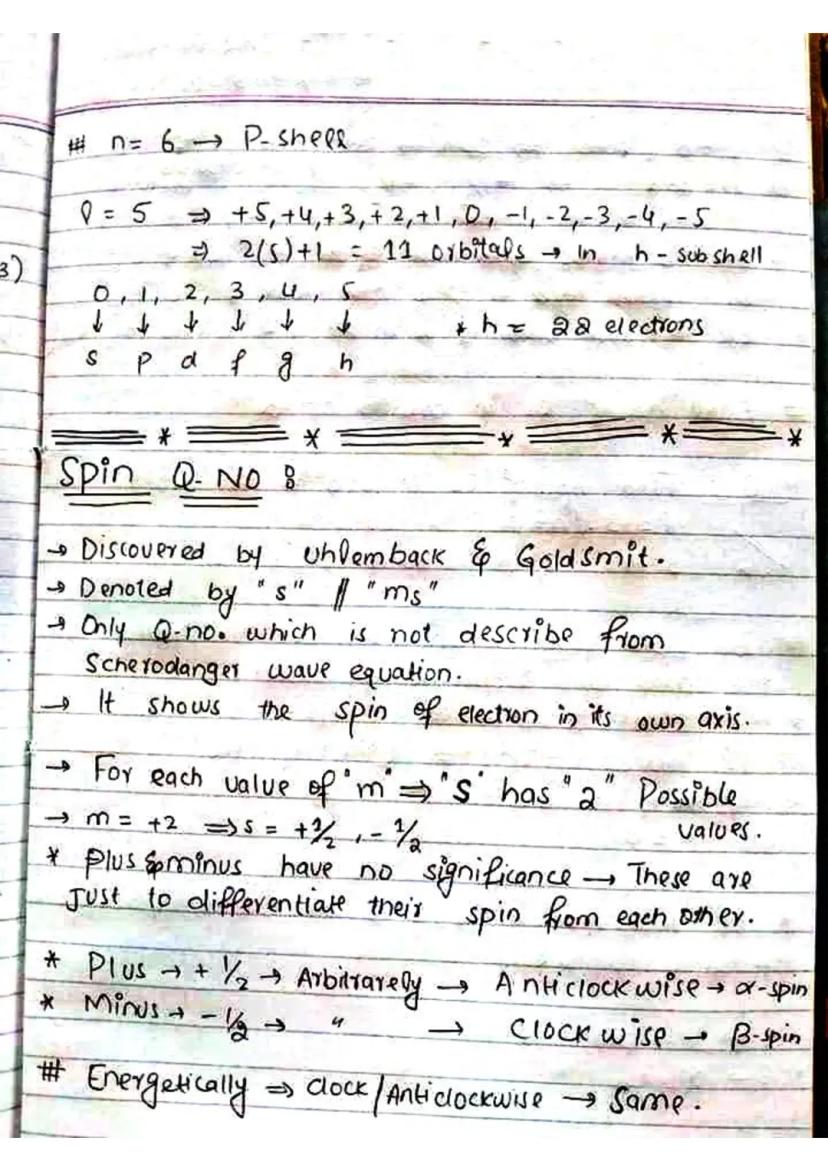 3)
# n= 6 → P-shell
l = 5 ⇒ +5,+4,+3,+2,+1,0,-1,-2,-3,-4,-5
⇒ 2(5)+1 = 11 orbitals → in h-subshell
0, 1, 2, 3, 4, 5
↓ ↓ ↓ ↓ ↓ ↓ * h = 22 elections
s p d f g h
Spin Q. NO :
→ Discovered by Uhlemback & Goldsmit.
→ Denoted by "s" // "ms"
→ Only Q-no. which is not describe from
Scherodanger wave equation.
→ It shows the spin of electron in its own axis.
→ For each value of "m" ⇒ "s" has "2" Possible
values.
→ m = +2 ⇒ s = +1/2, -1/2
* Plus & minus have no significance → These are
Just to differentiate their spin from each other.
* Plus → + 1/2 → Arbitrarely → Anticlockwise → α-spin
* Minus → - 1/2 → " → Clock wise → β-spin
# Energetically ⇒ clock/Anticlockwise → Same.